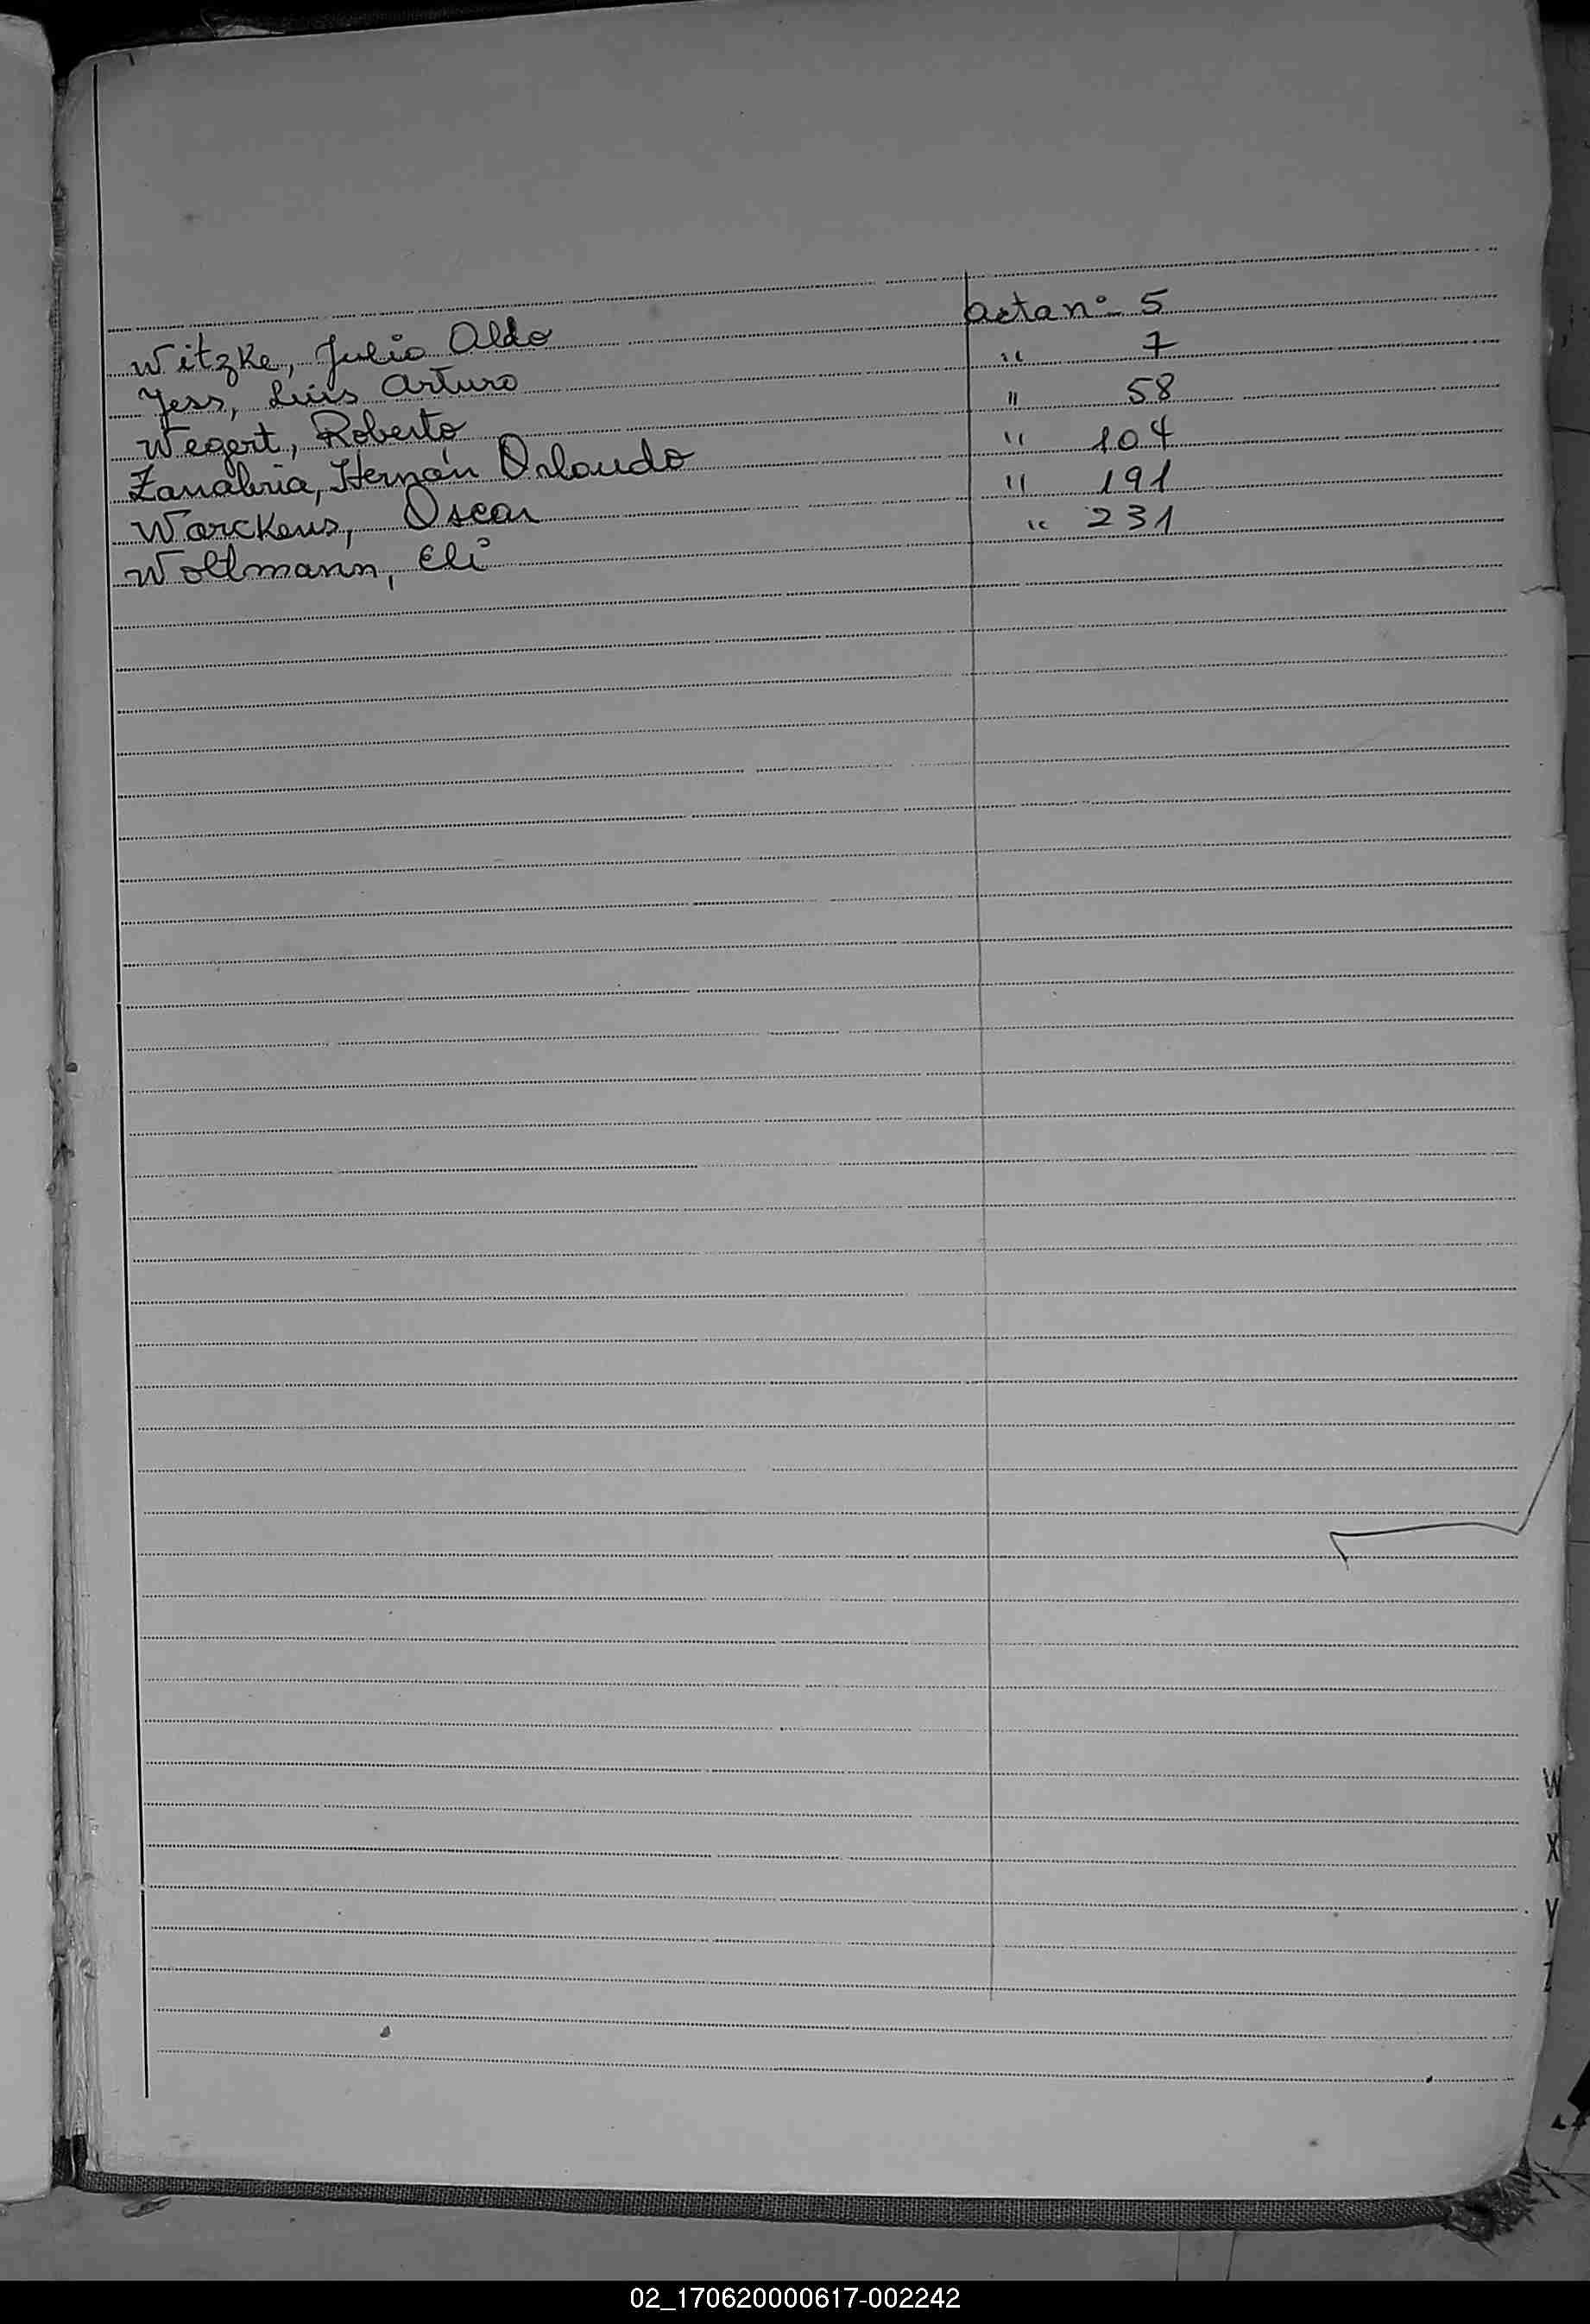 Witzke, Julio Aldo Acta nº 5
Yess, Luis Arturo " 7
Wegert, Roberto " 58
Zanabria, Hernán Orlando " 104
Warckens, Oscar " 191
Woltmann, Eli " 231
W
X
Y
Z
02_170620000617-002242